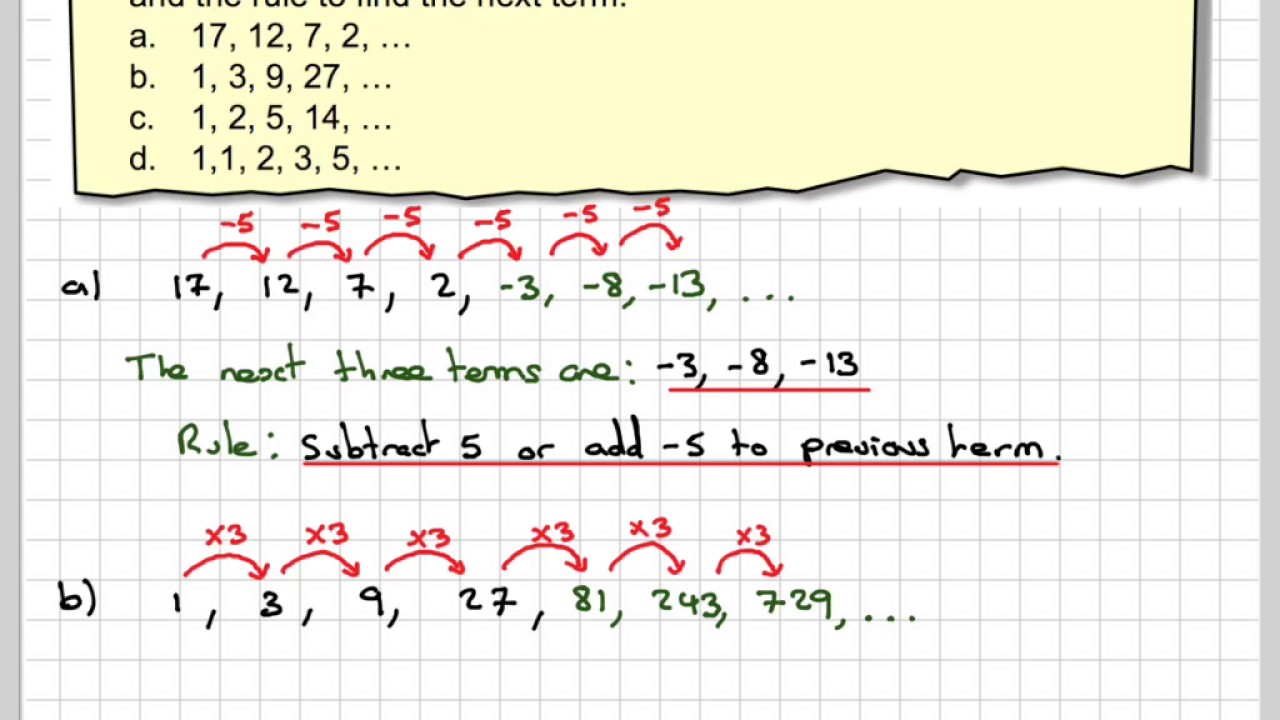 and the rule to find the next term.
a. 17, 12, 7, 2, …
b. 1, 3, 9, 27, …
c. 1, 2, 5, 14, …
d. 1,1, 2, 3, 5, …
-5 -5 -5 -5 -5 -5
a) 17, 12, 7, 2, -3, -8, -13, ...
The next three terms are: -3, -8, -13
Rule: Subtract 5 or add -5 to previous term.
x3 x3 x3 x3 x3 x3
b) 1, 3, 9, 27, 81, 243, 729, ...